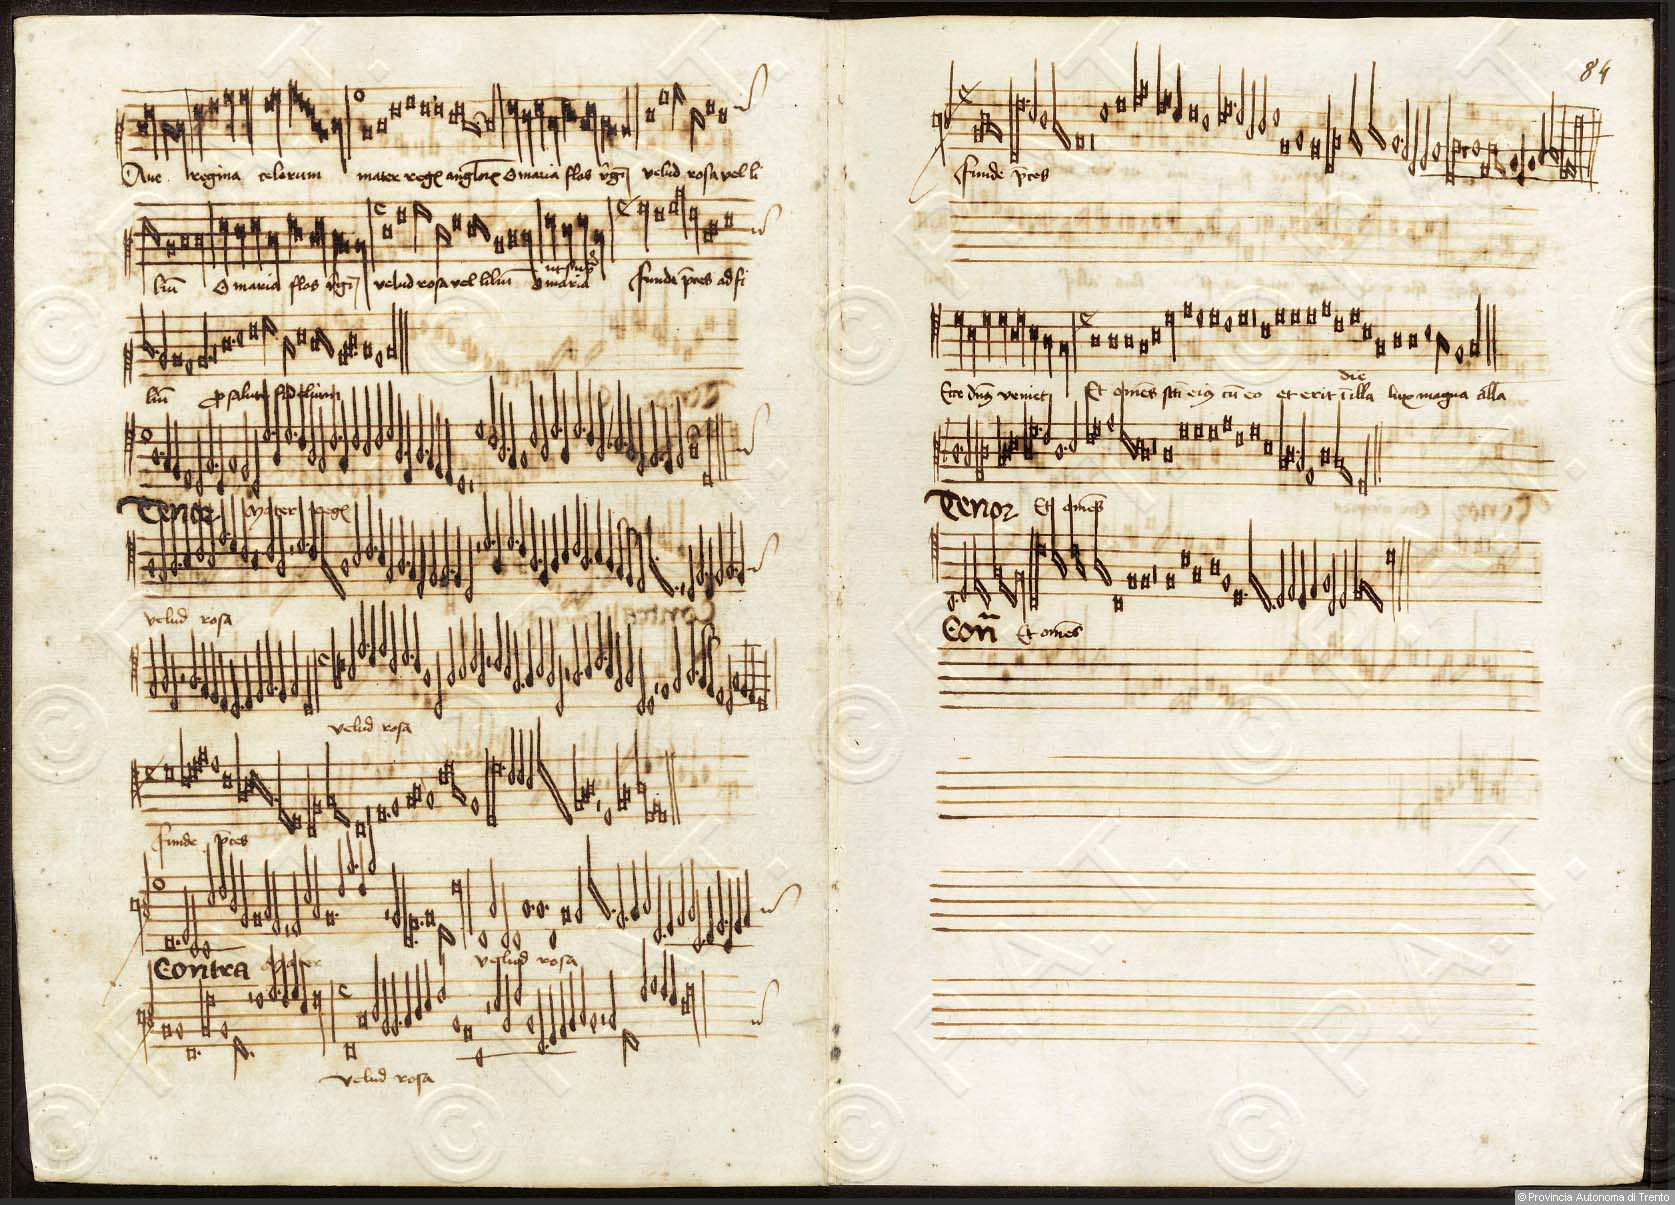 Ave regina celorum mater regꝭ anglorꝫ O maria flos v̄gī velud rosa vel li
liū O maria flos v̄gī velud rosa vel liliū O maria ut sup̄ funde p̄ces ad fi
liū p salute fidelium
Tenor Mater regꝭ
velud rosa
velud rosa
funde p̄ces
Contra Mater velud rosa
velud rosa
84
funde p̄ces
Ecce dn̄s veniet Et om̄es sc̄ti eiꝰ cū eo et erit ī die illa lux magna alla
Tenor Et om̄es
Con̄ Et om̄es
© Provincia Autonoma di Trento